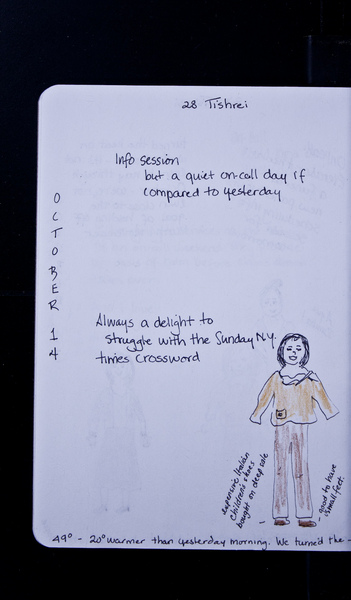 28 Tishrei
Info session
but a quiet on-call day if
compared to yesterday
OCTOBER 14
Always a delight to
struggle with the Sunday N.Y.
times crossword
expensive Italian
Children's shoes
bought on deep sale
good to have
small feet.
49° - 20° warmer than yesterday morning. We turned the -